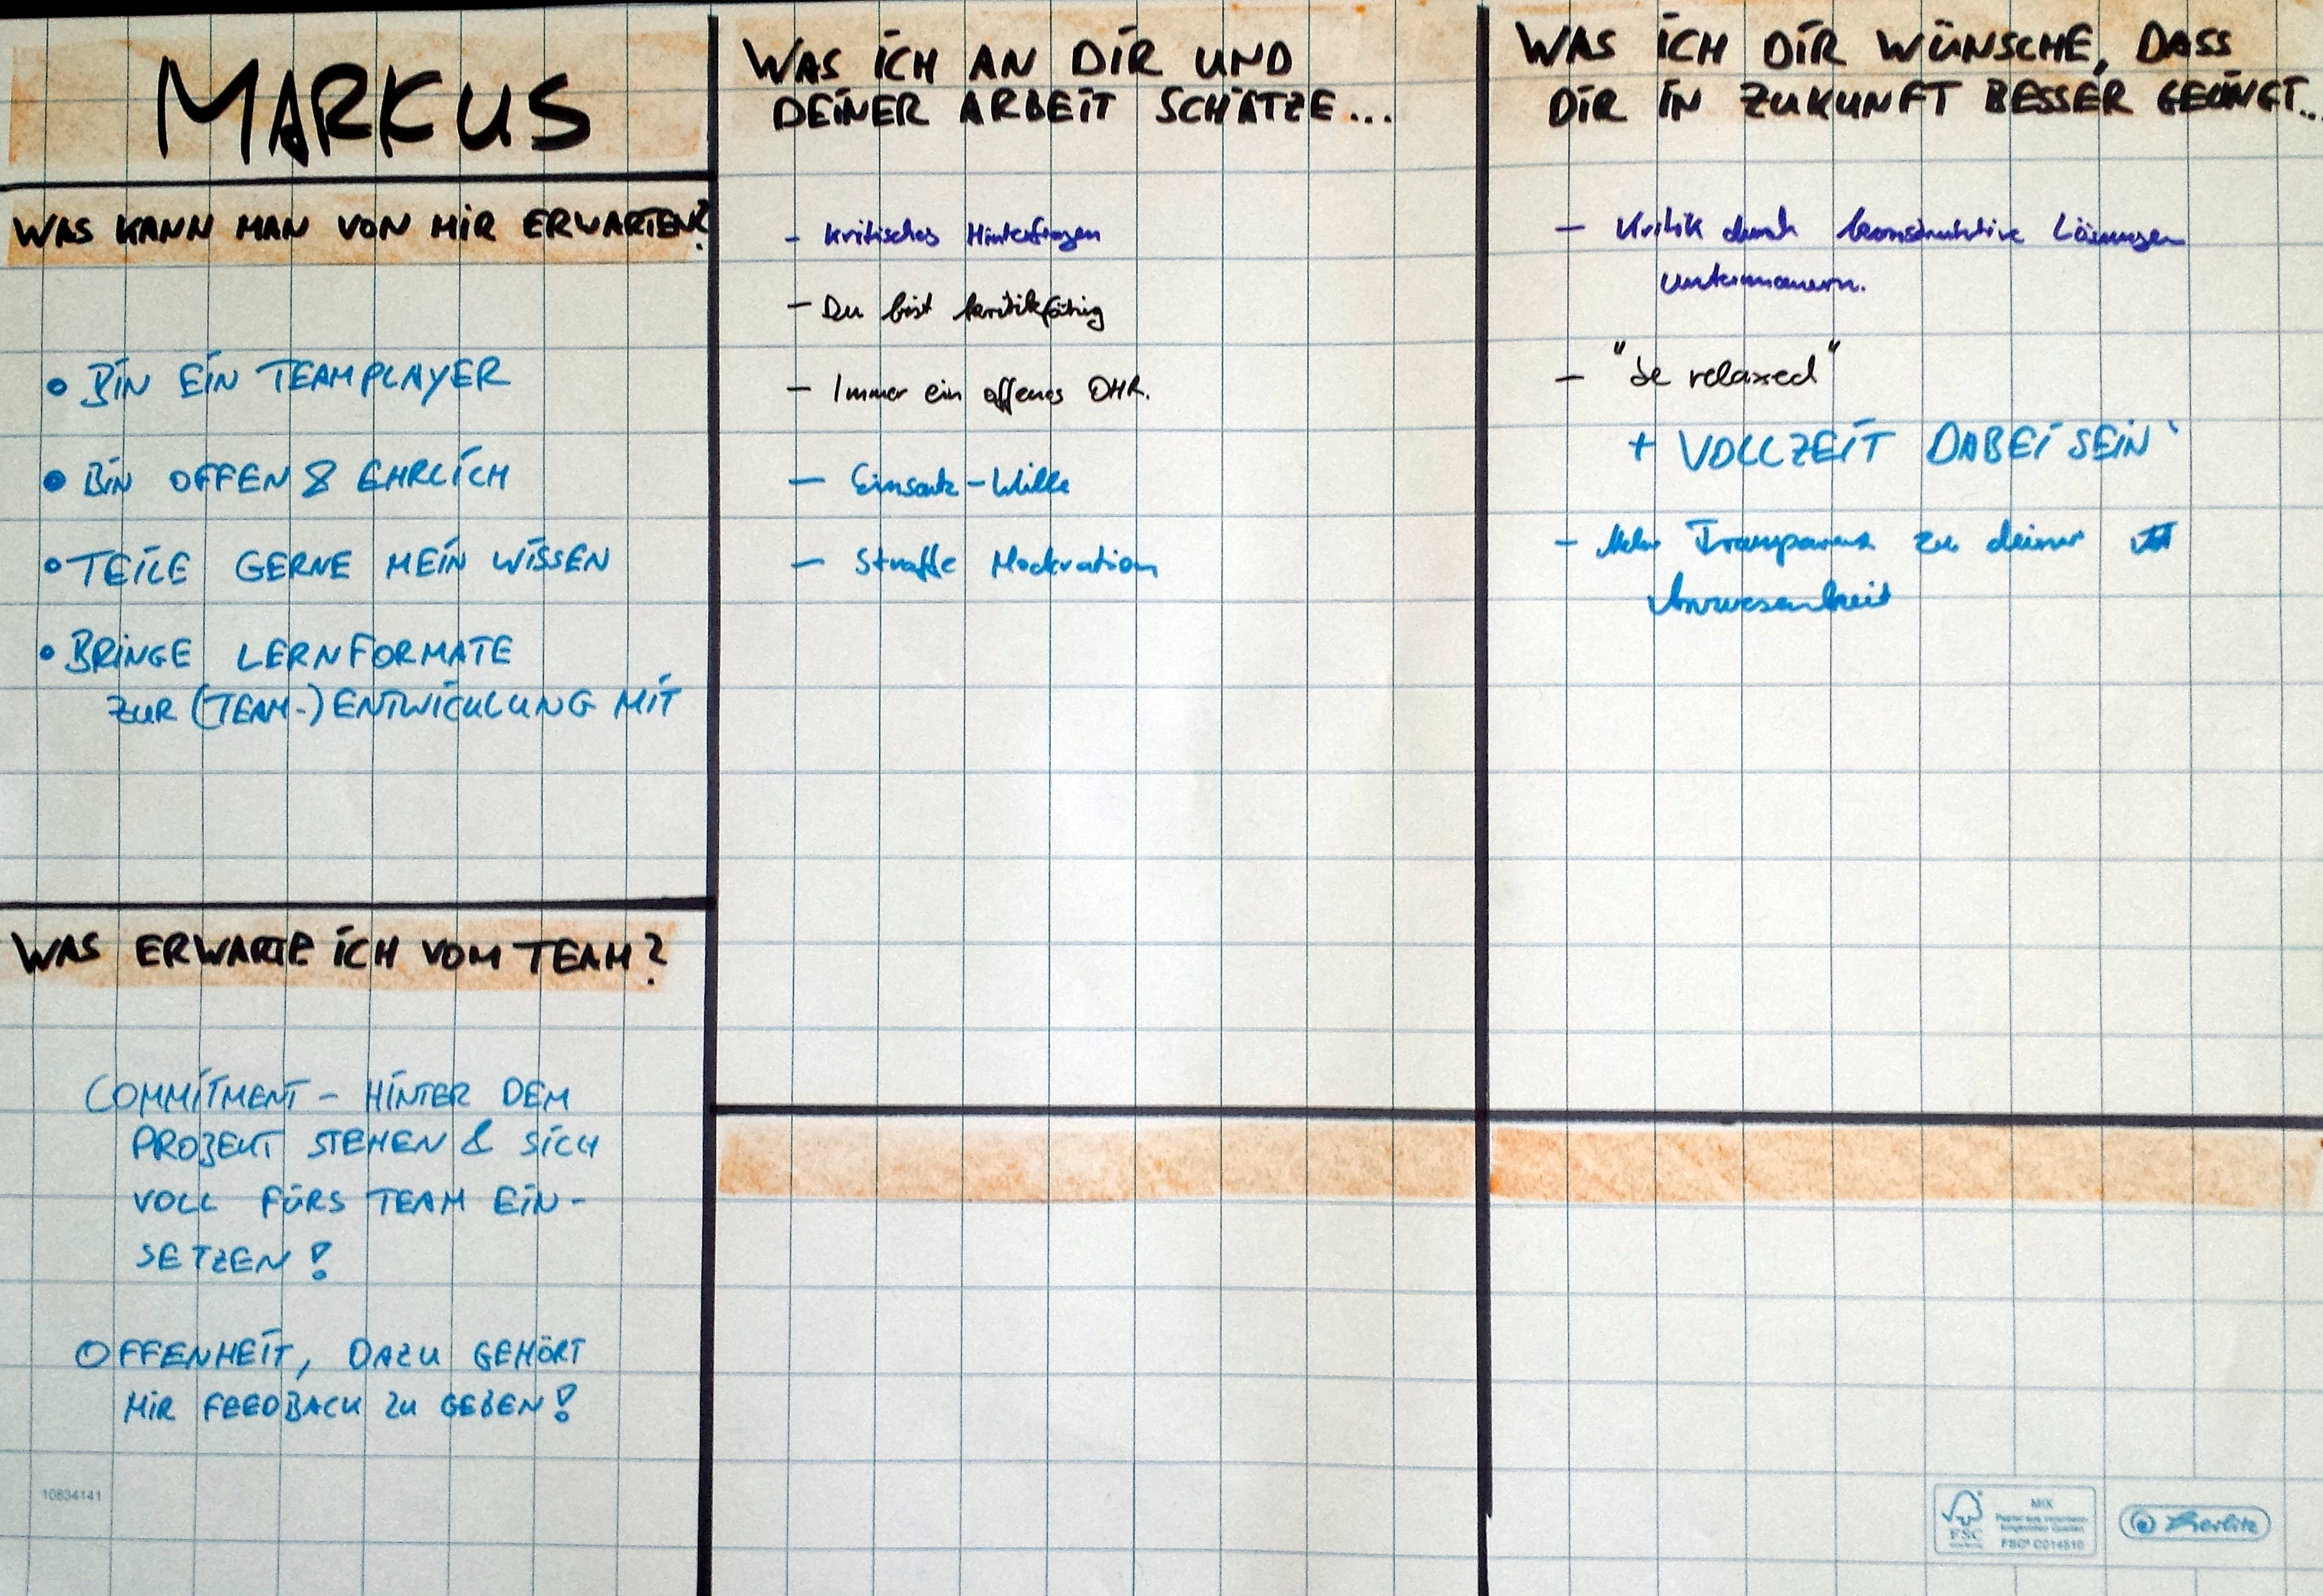 MARKUS
WAS KANN MAN VON MIR ERWARTEN?
• BIN EIN TEAMPLAYER
• BIN OFFEN & EHRLICH
• TEILE GERNE MEIN WISSEN
• BRINGE LERNFORMATE
ZUR (TEAM-) ENTWICKLUNG MIT
WAS ERWARTE ICH VOM TEAM?
COMMITMENT - HINTER DEM
PROJEKT STEHEN & SICH
VOLL FÜRS TEAM EIN-
SETZEN!
OFFENHEIT, DAZU GEHÖRT
MIR FEEDBACK ZU GEBEN!
10834141
WAS ICH AN DIR UND
DEINER ARBEIT SCHÄTZE...
- kritisches Hinterfragen
- Du bist kritikfähig
- Immer ein offenes OHR.
- Einsatz-Wille
- Straffe Moderation
WAS ICH DIR WÜNSCHE, DASS
DIR IN ZUKUNFT BESSER GELINGT...
- Kritik durch konstruktive Lösungen
untermauern.
- "be relaxed"
+ VOLLZEIT DABEI SEIN
- Mehr Transparenz zu deiner
Anwesenheit
FSC
MIX
FSC® C014510
herlitz